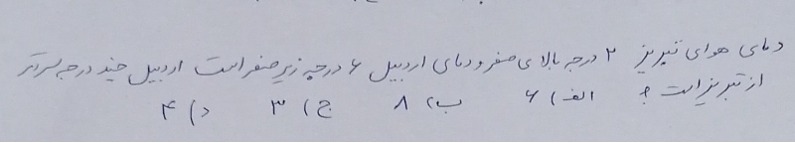 دمای هوای تبریز ۲ درجه بالای صفر و دمای اردبیل ۶ درجه زیر صفر است اردبیل چند درجه سردتر
از تبریز است ؟ الف) ۶ ب) ۸ ج) ۳ د) ۴